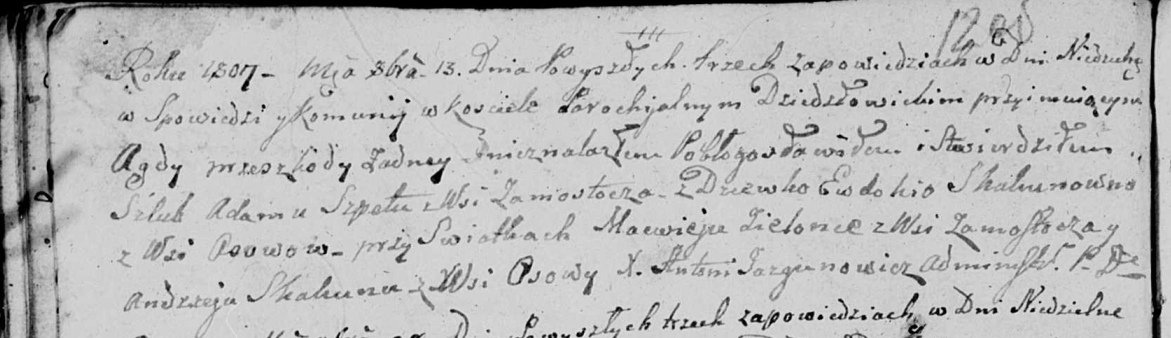 Roku 1807 - Mca 8bra. 13. Dnia Powyszłych trzech zapowiedziach w Dni Niedzielne
w Spowiedzi y Komunij w Kosciele Parochjalnym Dziedzłowickim przyimuiącym
Agdy przeszkody Żadney nieznalazłem Pobłogosławiłem i Stwierdziłem
Szlub Adamu Szpetu z Wsi Zamostocza - z Dziewko Ewdokio Skakunowno
z Wsi Osowow - przy Swiatkach Macwieju Zielonce z Wsi Zamostocza y
Andrzeju Skakunu z Wsi Osowy X. Antoni Jazgunowicz Adminstr. P. De
Dni Powyszłych trzech zapowiedziach w Dni Niedzielne